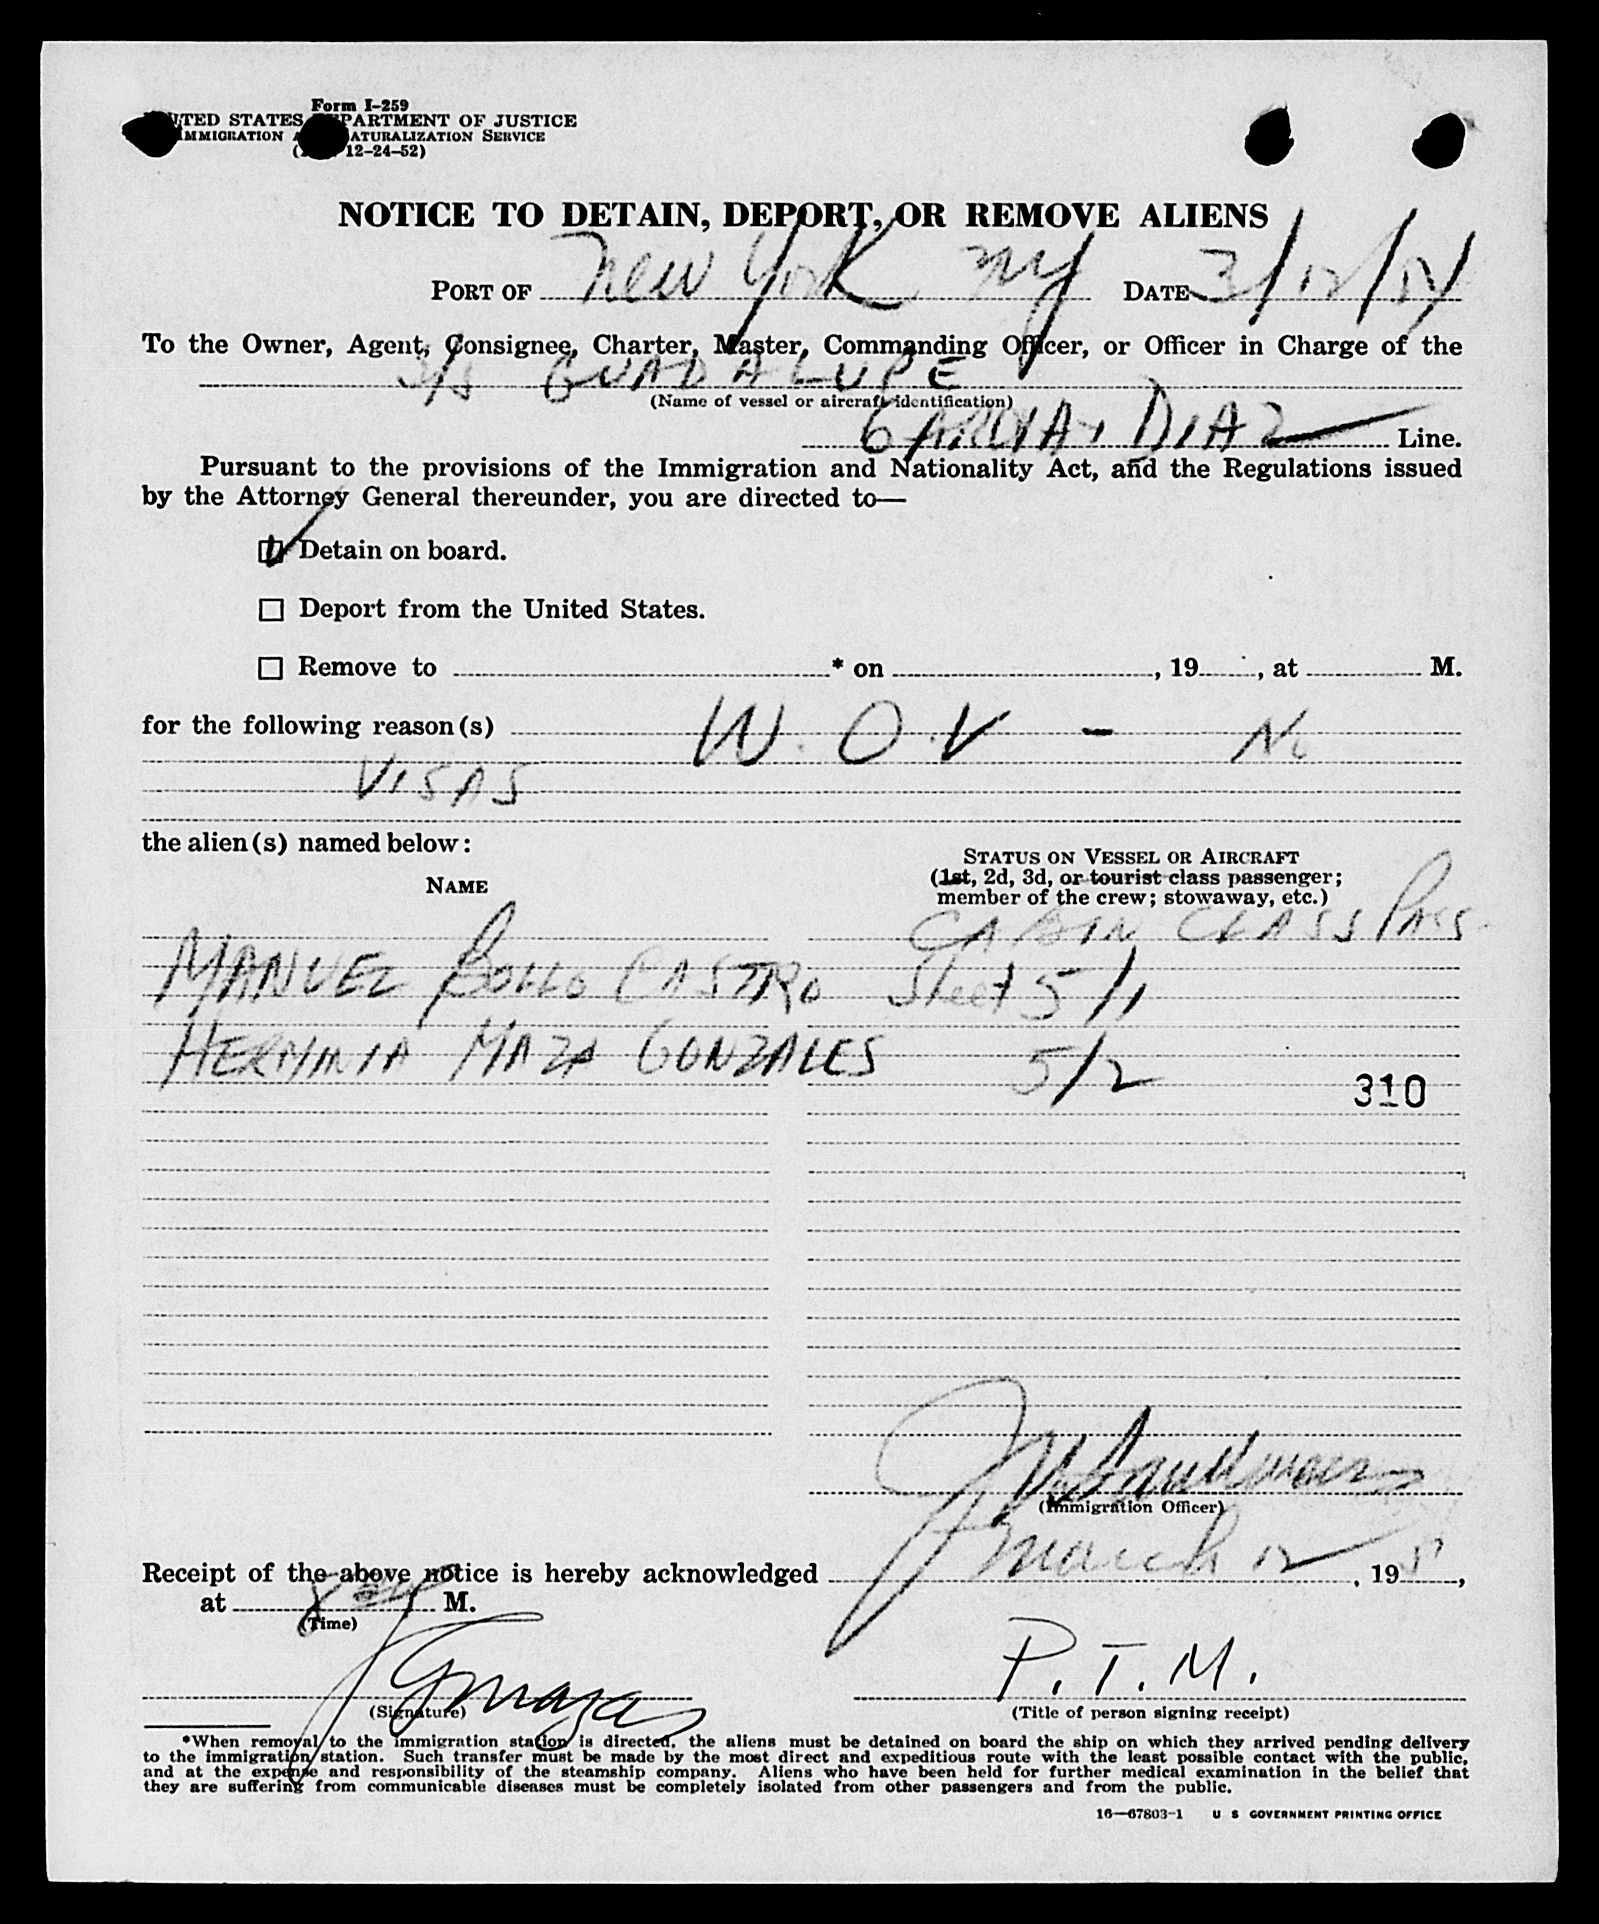 Form I-259
UNITED STATES DEPARTMENT OF JUSTICE
IMMIGRATION NATURALIZATION SERVICE
12-24-52)
NOTICE TO DETAIN, DEPORT, OR REMOVE ALIENS
PORT OF New York NY DATE 3/12/54
To the Owner, Agent, Consignee, Charter, Master, Commanding Officer, or Officer in Charge of the
S/S GUADALUPE
(Name of vessel or aircraft identification)
GARCIA & DIAZ Line.
Pursuant to the provisions of the Immigration and Nationality Act, and the Regulations issued
by the Attorney General thereunder, you are directed to—
Detain on board.
Deport from the United States.
Remove to * on , 19 , at M.
for the following reason(s) W.O.V - No
VISAS
the alien(s) named below:
NAME
STATUS ON VESSEL OR AIRCRAFT
(1st, 2d, 3d, or tourist class passenger;
member of the crew; stowaway, etc.)
CABIN CLASS PASS.
MANUEL BOLLO CASTRO Sheet 5/1
HERMINIA MAZA GONZALES 5/2
310
(Immigration Officer)
Receipt of the above notice is hereby acknowledged March 12, 195 ,
at M.
(Time)
P.T.M.
(Signature)
(Title of person signing receipt)
*When removal to the immigration station is directed, the aliens must be detained on board the ship on which they arrived pending delivery
to the immigration station. Such transfer must be made by the most direct and expeditious route with the least possible contact with the public,
and at the expense and responsibility of the steamship company. Aliens who have been held for further medical examination in the belief that
they are suffering from communicable diseases must be completely isolated from other passengers and from the public.
16—67803-1 U S GOVERNMENT PRINTING OFFICE